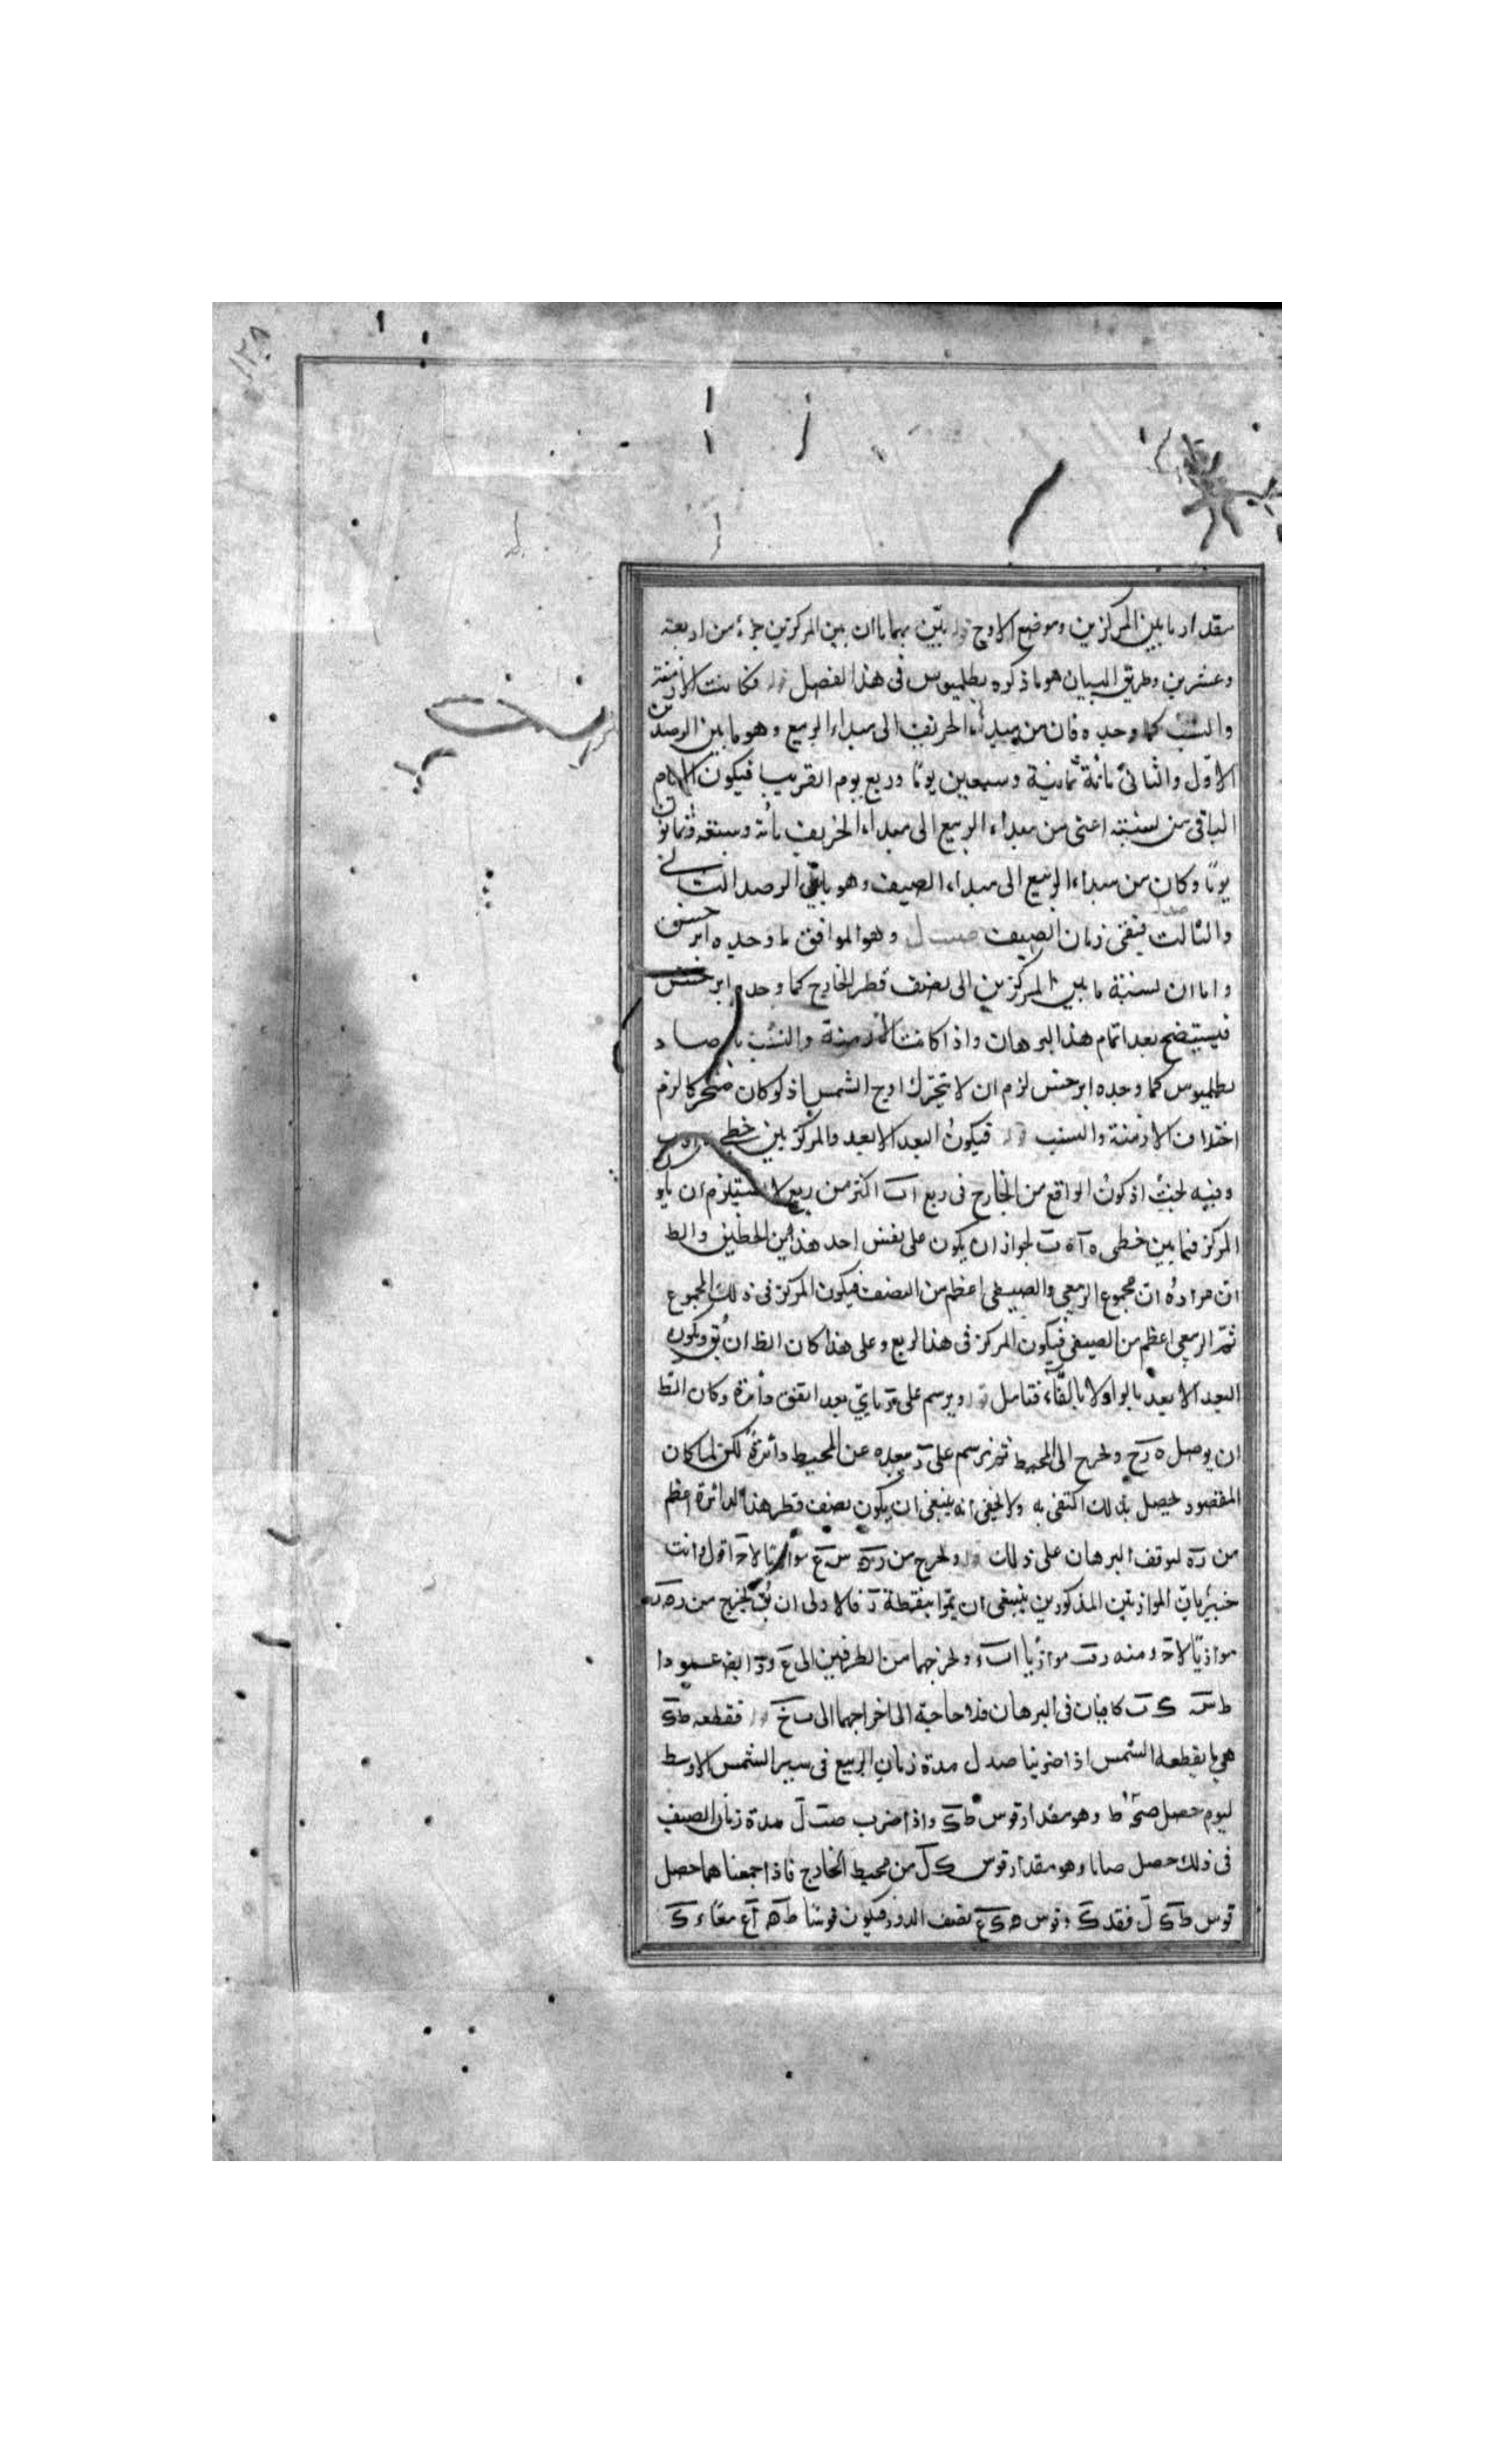 ١٢٨
مقدار ما بين المركزين وموضع الاوج قوله يتبين بهما ان بين المركزين جزء من اربعة
وعشرين وطريق البيان هو ما ذكره بطلميوس فى هذا الفصل قوله فكانت الازمنة
والنسب كما وجده فان من مبداء الخريف الى مبداء الربيع وهو ما بين الرصدين
الاول والثانى مائة ثمانية وسبعين يوما وربع يوم التقريب فيكون الايام
الباقى من لسنته اعنى من مبداء الربيع الى مبداء الخريف مائة وسبعة وثمانون
يوما وكان من مبداء الربيع الى مبداء الصيف وهو ما بين الرصد الثانى
والثالث صدل فيبقى زمان الصيف صب ل وهو الموافق ما وجده ابرخس
واما ان نسبة ما بين المركزين الى نصف قطر الخارج كما وجده ابرخس
فيستضح بعد اتمام هذا البرهان واذا كانت الازمنة والنسب بارصاد
بطلميوس كما وجده ابرخس لزم ان لا يتحرك اوج الشمس اذ لو كان متحركا لزم
اختلاف الازمنة والنسب قوله فيكون البعد الابعد والمركز بين خطى
وفيه بحث اذ كون الواقع من الخارج فى ربع اب اكثر من ربع لا يستلزم ان
المركز فيما بين خطى ه ا ه ب لجواز ان يكون على نفس احد هذين الخطين والظ
ان مراده ان مجموع الربيعى والصيفى اعظم من النصف فيكون المركز فى ذلك المجموع
ثم الربيعى اعظم من الصيفى فيكون المركز فى هذا الربع وعلى هذا كان الظ ان يق ويكون
البعد الابعد بالواو لا بالفاء فتامل قوله ويرسم على ر باى بعد اتفق دائرة وكان الظ
ان يوصل ه ر ح ويخرج الى المحيط ثم نرسم على ر ببعده عن المحيط دائرة لكن لما كان
المقصود يحصل بذلك اكتفى به ولا يخفى انه ينبغى ان يكون نصف قطر هذا الدائرة اعظم
من ر ه لتوقف البرهان على ذلك قوله ويخرج من ر س ع موازيا لا ح اقول وانت
خبير بان الموازيتين المذكورين ينبغى ان يمرا بنقطة ر فالاولى ان يق يخرج من ر
موازيا لا ح ومنه ر ف موازيا ا ب ويخرجهما من الطرفين الى ع و ايضا عمودا
ط س ك ت كافيان فى البرهان فلا حاجة الى اخراجهما الى ب خ قوله فقطعة ط ك
هى ما يقطعه الشمس اذا ضربنا صد ل مدة زمان الربيع فى سير الشمس الاوسط
ليوم حصل صح ط وهو مقدار قوس ط ك واذا ضرب صب ل مدة زمان الصيف
فى ذلك حصل صا نا وهو مقدار قوس ك ل من محيط الخارج فاذا جمعناهما حصل
قوس ط ك ل فقد ك وقوس ه ك ع نصف الدور فيكون قوسا ط ه ل ع معا ء ك